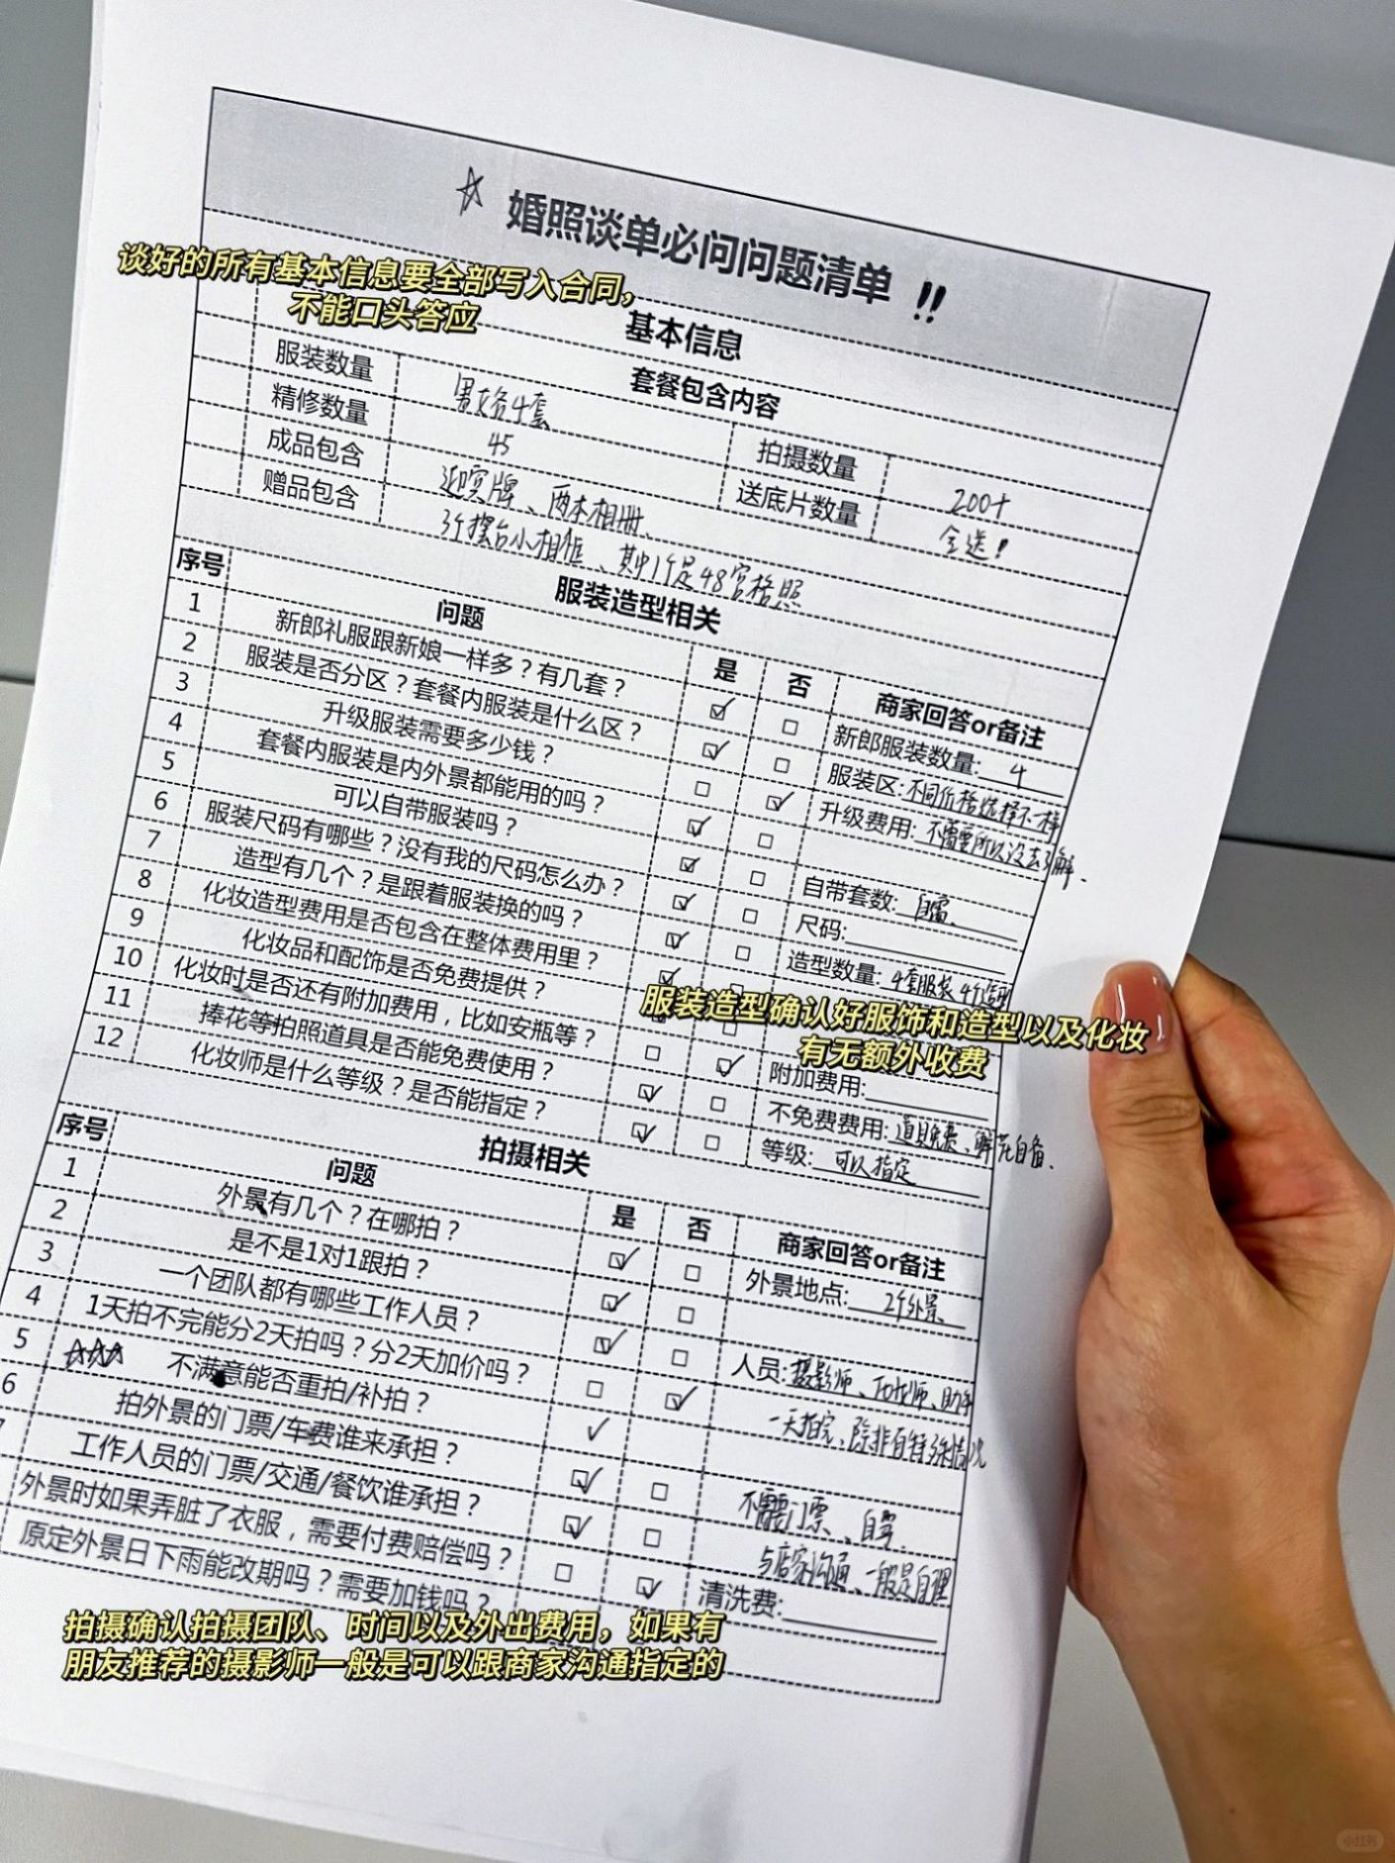 ☆ 婚照谈单必问问题清单 !!
谈好的所有基本信息要全部写入合同，
不能口头答应
基本信息
套餐包含内容
服装数量 男女各4套 拍摄数量 200+
精修数量 45 送底片数量 全送！
成品包含 迎宾牌、两本相册、
赠品包含 3个摆台小相框、其中1个是48宫格照
服装造型相关
序号 问题 是 否 商家回答or备注
1 新郎礼服跟新娘一样多？有几套？ ☑ □ 新郎服装数量: 4
2 服装是否分区？套餐内服装是什么区？ ☑ □ 服装区: 不同价格选择不一样
3 升级服装需要多少钱？ □ ☑ 升级费用: 不需要所以没去了解.
4 套餐内服装是内外景都能用的吗？ ☑ □
5 可以自带服装吗？ ☑ □ 自带套数:
6 服装尺码有哪些？没有我的尺码怎么办？ ☑ □ 尺码:
7 造型有几个？是跟着服装换的吗？ ☑ □ 造型数量: 4套服装4个造型
8 化妆造型费用是否包含在整体费用里？ ☑
9 化妆品和配饰是否免费提供？
服装造型确认好服饰和造型以及化妆
有无额外收费
10 化妆时是否还有附加费用，比如安瓶等？ □ ☑ 附加费用:
11 捧花等拍照道具是否能免费使用？ ☑ □ 不免费费用: 道具免费、鲜花自备.
12 化妆师是什么等级？是否能指定？ ☑ □ 等级: 可以指定
拍摄相关
序号 问题 是 否 商家回答or备注
1 外景有几个？在哪拍？ ☑ □ 外景地点: 2个外景.
2 是不是1对1跟拍？ ☑ □
3 一个团队都有哪些工作人员？ ☑ □ 人员: 摄影师、化妆师、助手
4 1天拍不完能分2天拍吗？分2天加价吗？ □ ☑ 一天拍完、除非有特殊情况
5 ☆☆☆ 不满意能否重拍/补拍？ ✓
6 拍外景的门票/车费谁来承担？ ☑ □ 不需要门票、
工作人员的门票/交通/餐饮谁承担？ ☑ □ 与店家沟通、一般是自理
外景时如果弄脏了衣服，需要付费赔偿吗？ □ ☑ 清洗费:
原定外景日下雨能改期吗？需要加钱吗？
拍摄确认拍摄团队、时间以及外出费用，如果有
朋友推荐的摄影师一般是可以跟商家沟通指定的
小红书